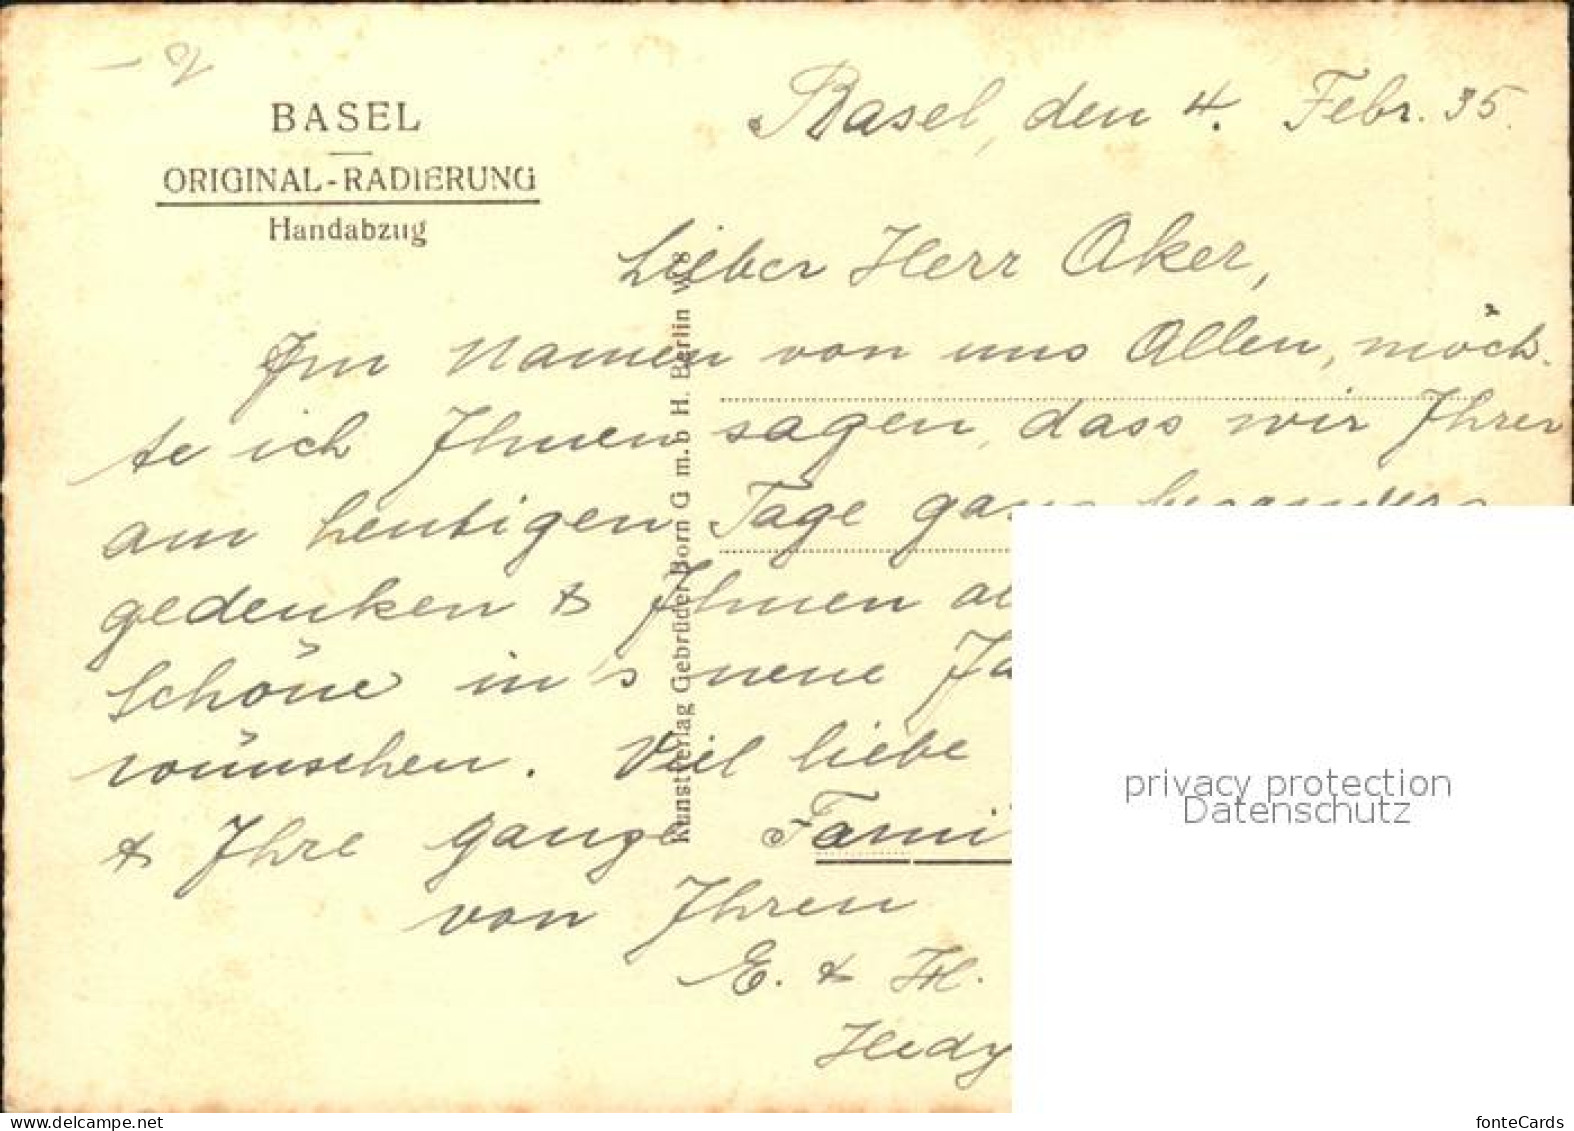 BASEL
ORIGINAL-RADIERUNG
Handabzug
Basel, den 4. Febr. 35.
Lieber Herr Aker,
Im Namen von uns Allen, möch-
te ich Ihnen sagen, dass wir Ihrer
am heutigen Tage ganz
gedenken & Ihnen
schöne in's neue
wünschen. Viel liebe
& Ihre ganze Fami
von Ihren
E. & H.
Hedy
Kunstverlag Gebrüder Born G m. b H. Berlin W 8
privacy protection
Datenschutz
www.delcampe.net
fonteCards